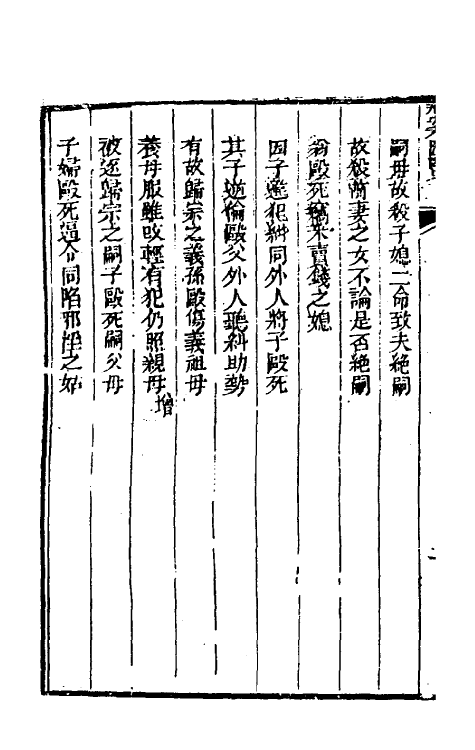 嗣母故殺子媳二命致夫絶嗣
故殺前妻之女不論是否絶嗣
翁毆死竊米賣錢之媳
因子違犯糾同外人將子毆死
其子逆倫毆父外人聽糾助勢
有故歸宗之義孫毆傷義祖母
養母服雖改輕有犯仍照親母增
被逐歸宗之嗣子毆死嗣父母
子婦毆死逼令同陷邪婬之姑